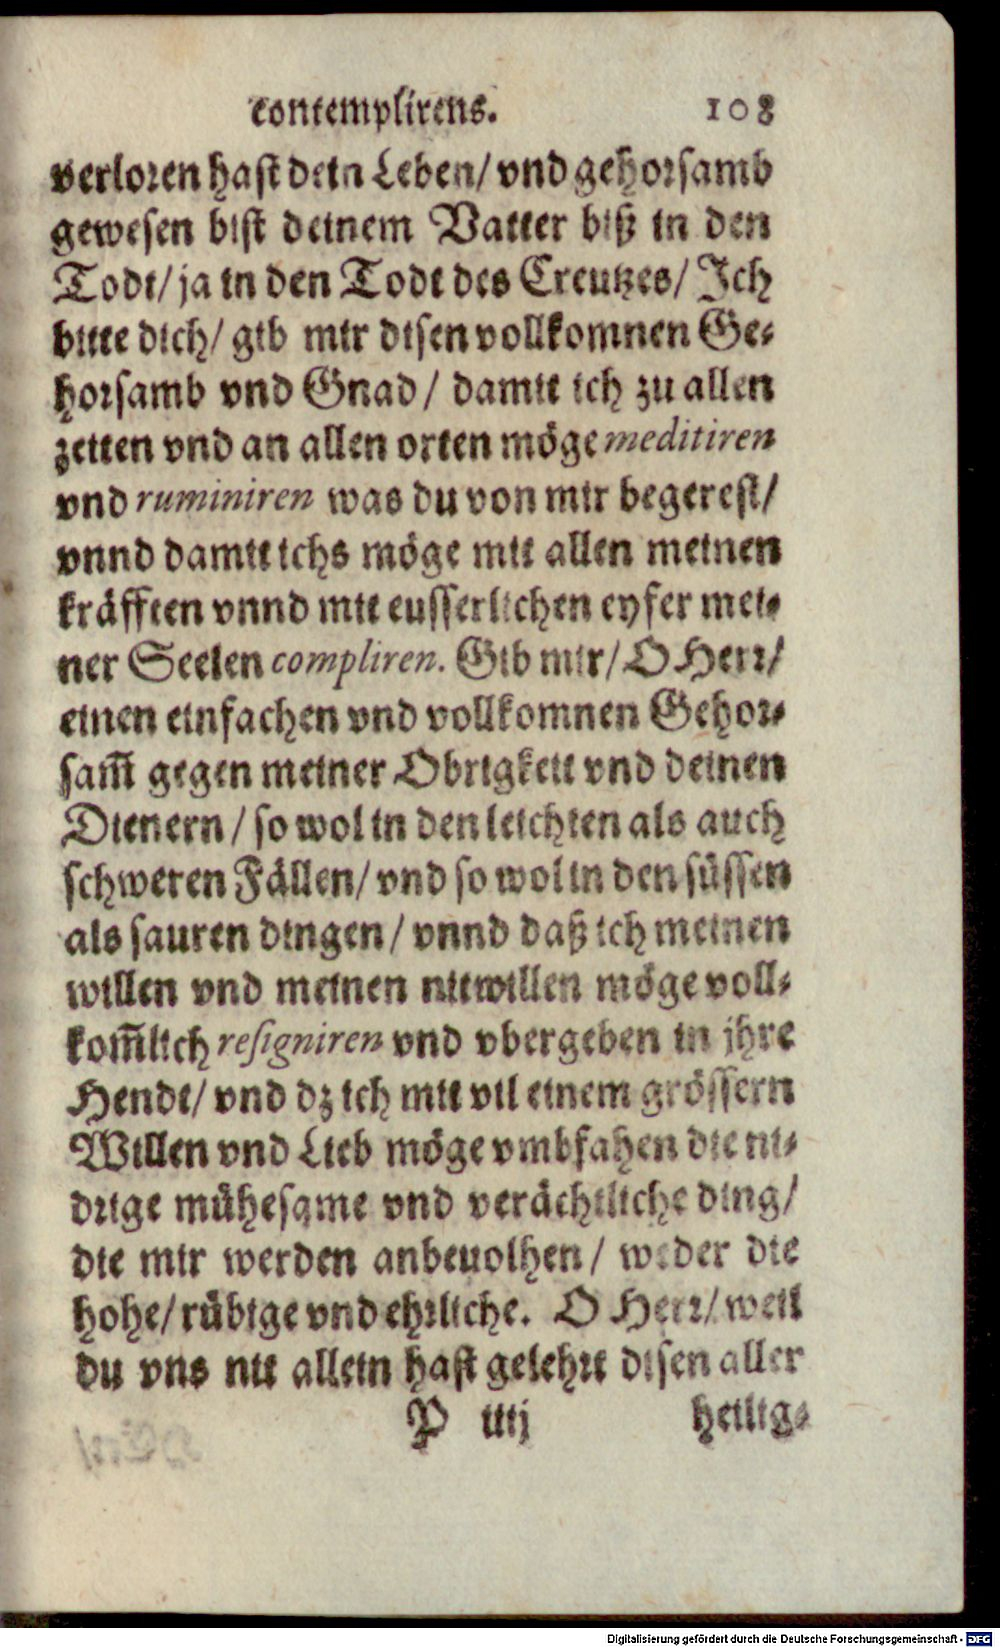 contemplirens. 108
verloren hast dein Leben/ vnd gehorsamb
gewesen bist deinem Vatter biß in den
Todt/ ja in den Todt des Creutzes/ Ich
bitte dich/ gib mir disen vollkomnen Ge-
horsamb vnd Gnad/ damit ich zu allen
zeiten vnd an allen orten möge meditiren
vnd ruminiren was du von mir begerest/
vnnd damit ichs möge mit allen meinen
kräfften vnnd mit eusserlichen eyfer mei-
ner Seelen compliren. Gib mir/ O Herr/
einen einfachen vnd vollkomnen Gehor-
sam̄ gegen meiner Obrigkeit vnd deinen
Dienern/ so wol in den leichten als auch
schweren Fällen/ vnd so wol in den süssen
als sauren dingen/ vnnd daß ich meinen
willen vnd meinen nitwillen möge voll-
kom̄lich resigniren vnd vbergeben in jhre
Hendt/ vnd dz ich mit vil einem grössern
Willen vnd Lieb möge vmbfahen die ni-
drige mühesame vnd verächtliche ding/
die mir werden anbeuolhen/ weder die
hohe/ rübige vnd ehrliche. O Herr/ weil
du vns nit allein hast gelehrt disen aller
P iiij heilig-
Digitalisierung gefördert durch die Deutsche Forschungsgemeinschaft - DFG